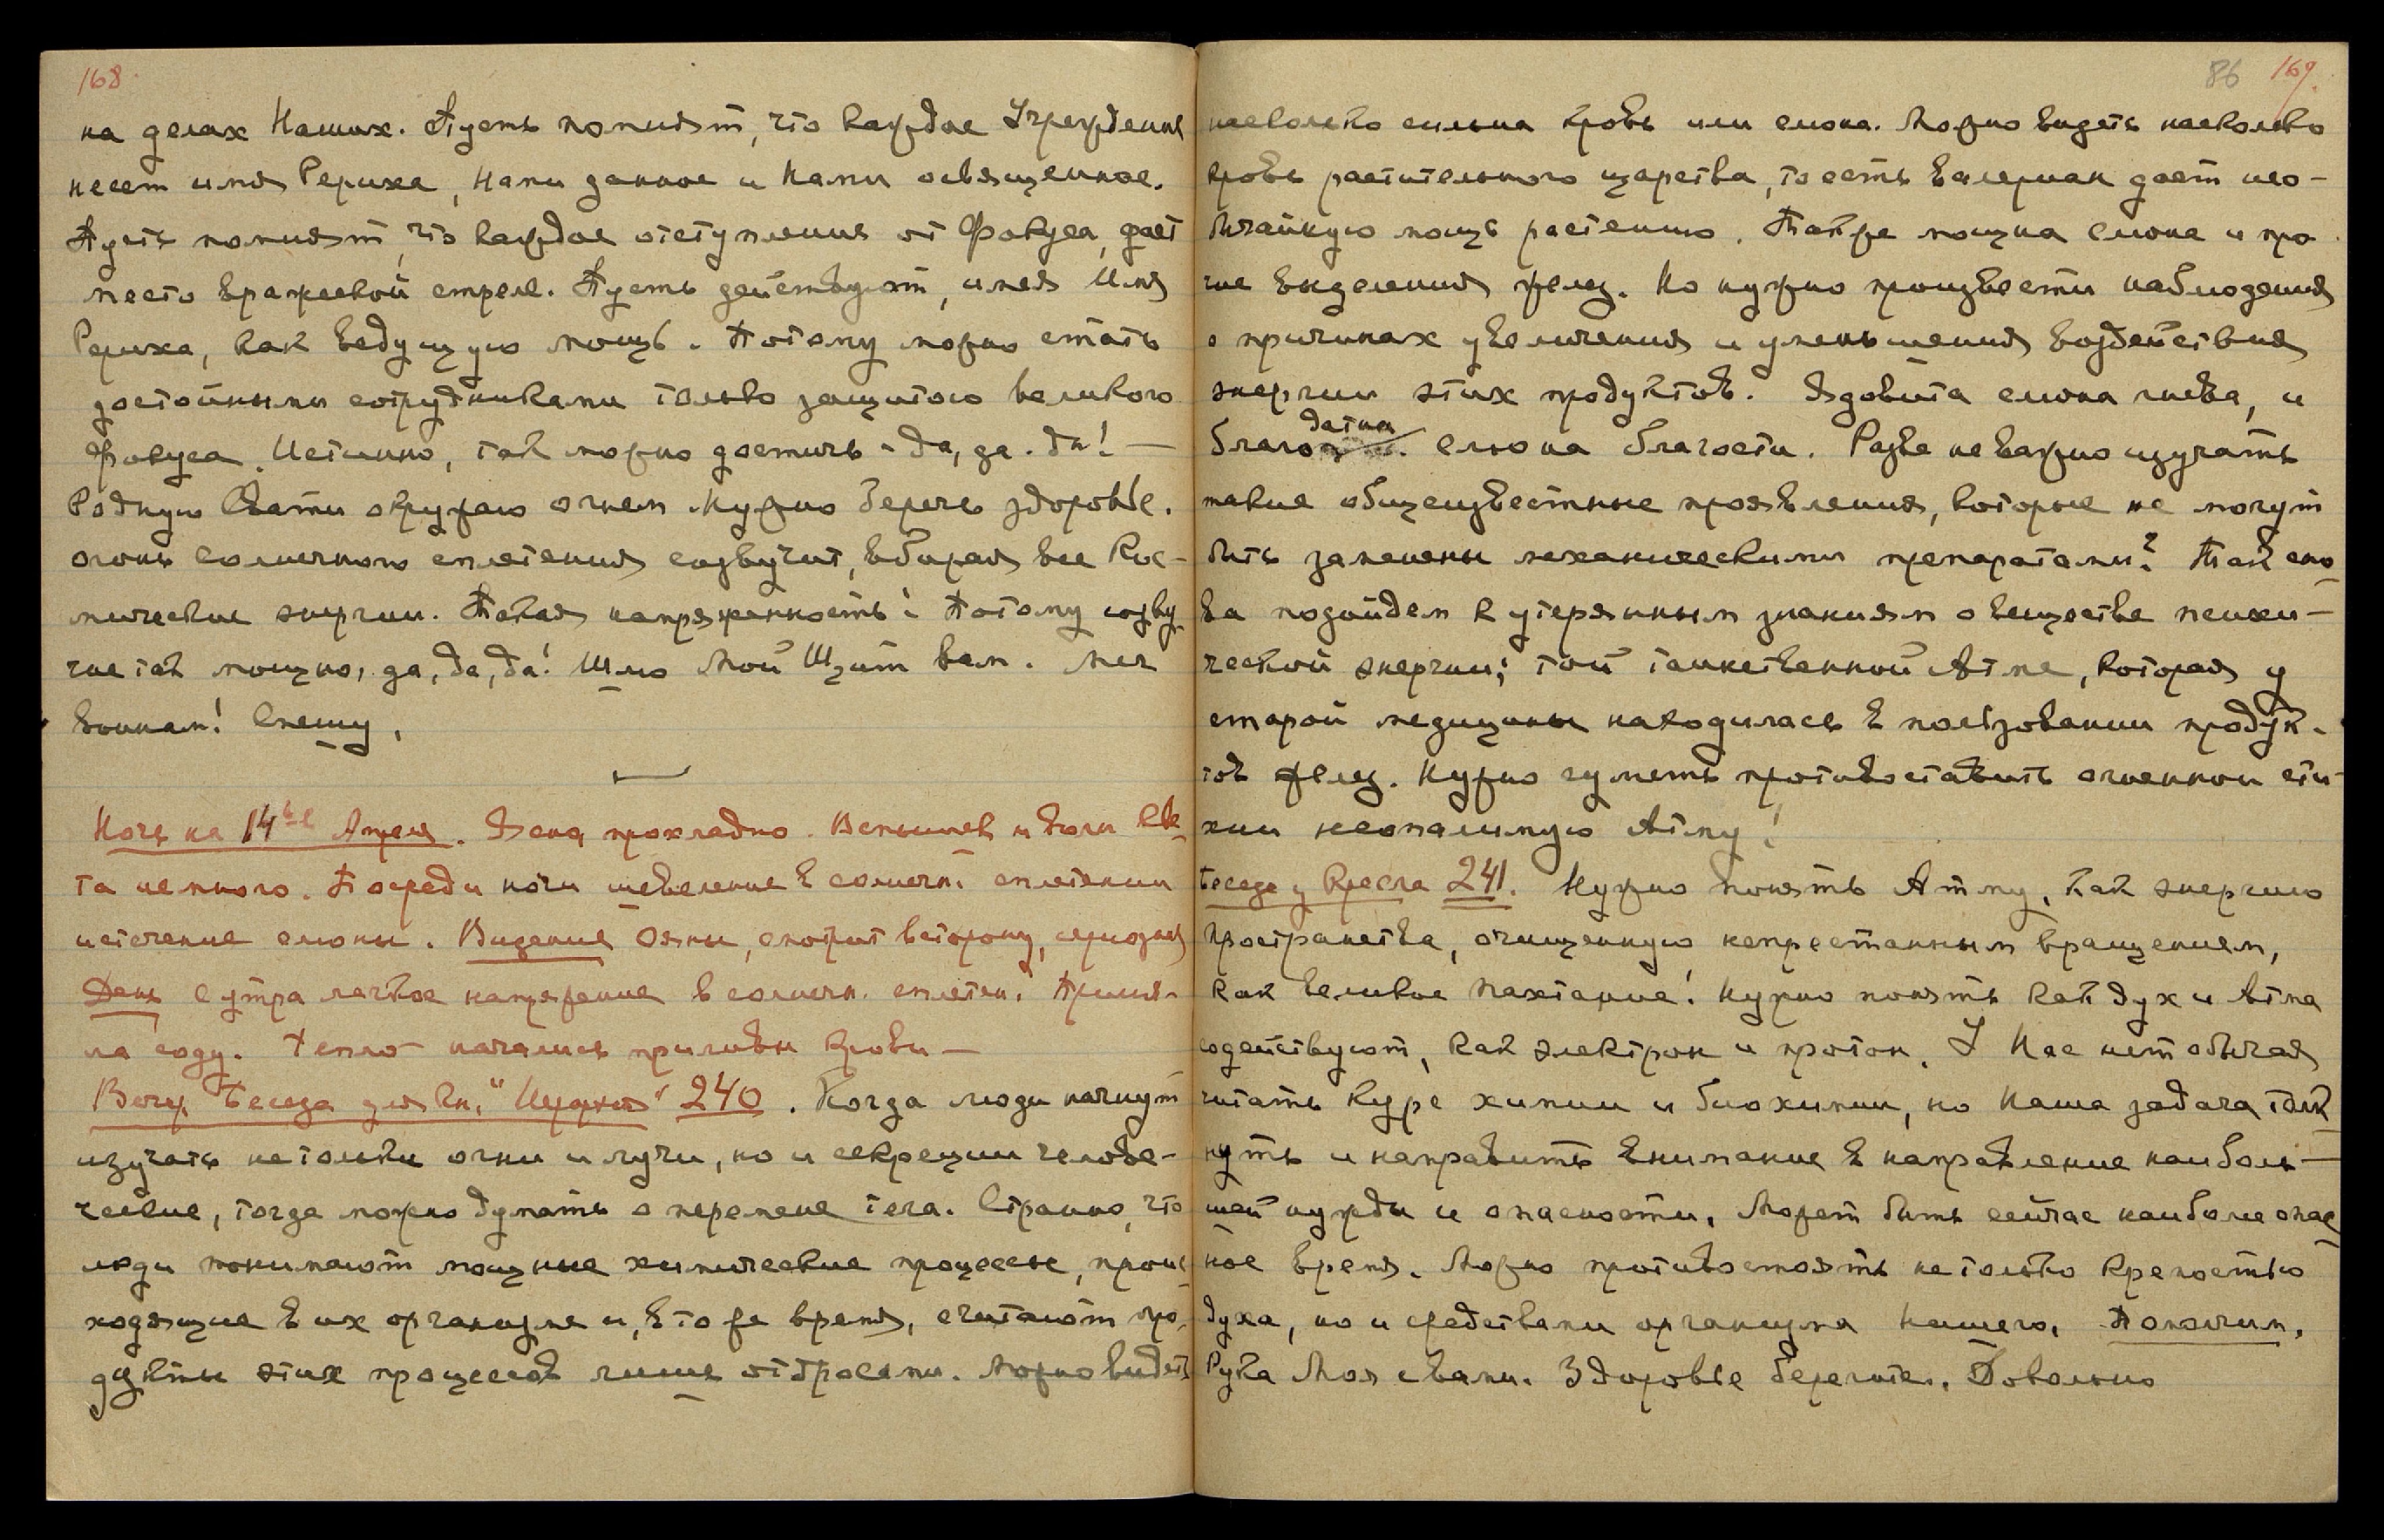 168.
на делах Наших. Пусть помнят, что каждое Учреждение
несет имя Рериха, Нами данное и Нами освященное.
Пусть помнят, что каждое отступление от Фокуса, дает
место вражеской стреле. Пусть действуют, имея Имя
Рериха, как ведущую мощь. Потому можно стать
достойными сотрудниками только защитою великого
Фокуса. Истинно, так можно достичь - да, да. да! —
Родную Свати окружаю огнем. Нужно беречь здоровье.
огонь солнечного сплетения созвучит, вбирая все Кос-
мические энергии. Такая напряженность! Потому созву-
чие так мощно, да, да, да! Шлю Мой Щит вам. Меч
воинам! Спешу.
Ночь на 14ое Апреля. Ясно, прохладно. Вспышек и Све-
та немного. Посреди ночи шевеление в солнечн. сплетении
истечение слюны. Видение Ояны, смотрит в сторону,
День с утра легкое напряжение в солнечн. сплетен. Приня-
ла соду. Тепло — начались приливы крови —
Вечер. Беседа для кн. "Иерархия" 240. Когда люди начнут
изучать не только огни и лучи, но и секреции человече-
ческие, тогда можно думать о перемене тела. Странно, что
люди понимают мощные химические процессы, проис-
ходящие в их организме и, в то же время, считают про-
дукты этих процессов лишь отбросами. Можно видеть
86 169.
насколько сильна кровь или слюна. Можно видеть насколько
кровь растительного царства, то есть валериан дает нео-
бычайную мощь растению. Также мощна слюна и про-
чие выделения желез. Но нужно произвести наблюдения
о причинах увеличения и уменьшения воздействия
энергии этих продуктов. Ядовита слюна гнева, и
благодатна слюна благости. Разве не важно изучать
такие общеизвестные проявления, которые не могут
быть заменены механическими препаратами? Так сно-
ва подойдем к утерянным знаниям о веществе психи-
ческой энергии; той таинственной Атме, которая у
старой медицины находилась в пользовании продук-
тов желез. Нужно суметь противоставить огненной сти-
хии неопалимую Атму!
Беседа у Кресла 241. Нужно понять Атму, как энергию
пространства, очищенную непрестанным вращением,
как великое Пахтание! Нужно понять как дух и Атма
содействуют, как электрон и протон. У Нас нет обычая
читать курс химии и биохимии, но Наша задача толк-
нуть и направить внимание в направление наиболь-
шей нужды и опасности. Может быть сейчас наиболее опас-
ное время. Можно противостоять не только крепостью
духа, но и средствами организма нашего. Поможем.
Рука Моя с вами. Здоровье берегите. Довольно